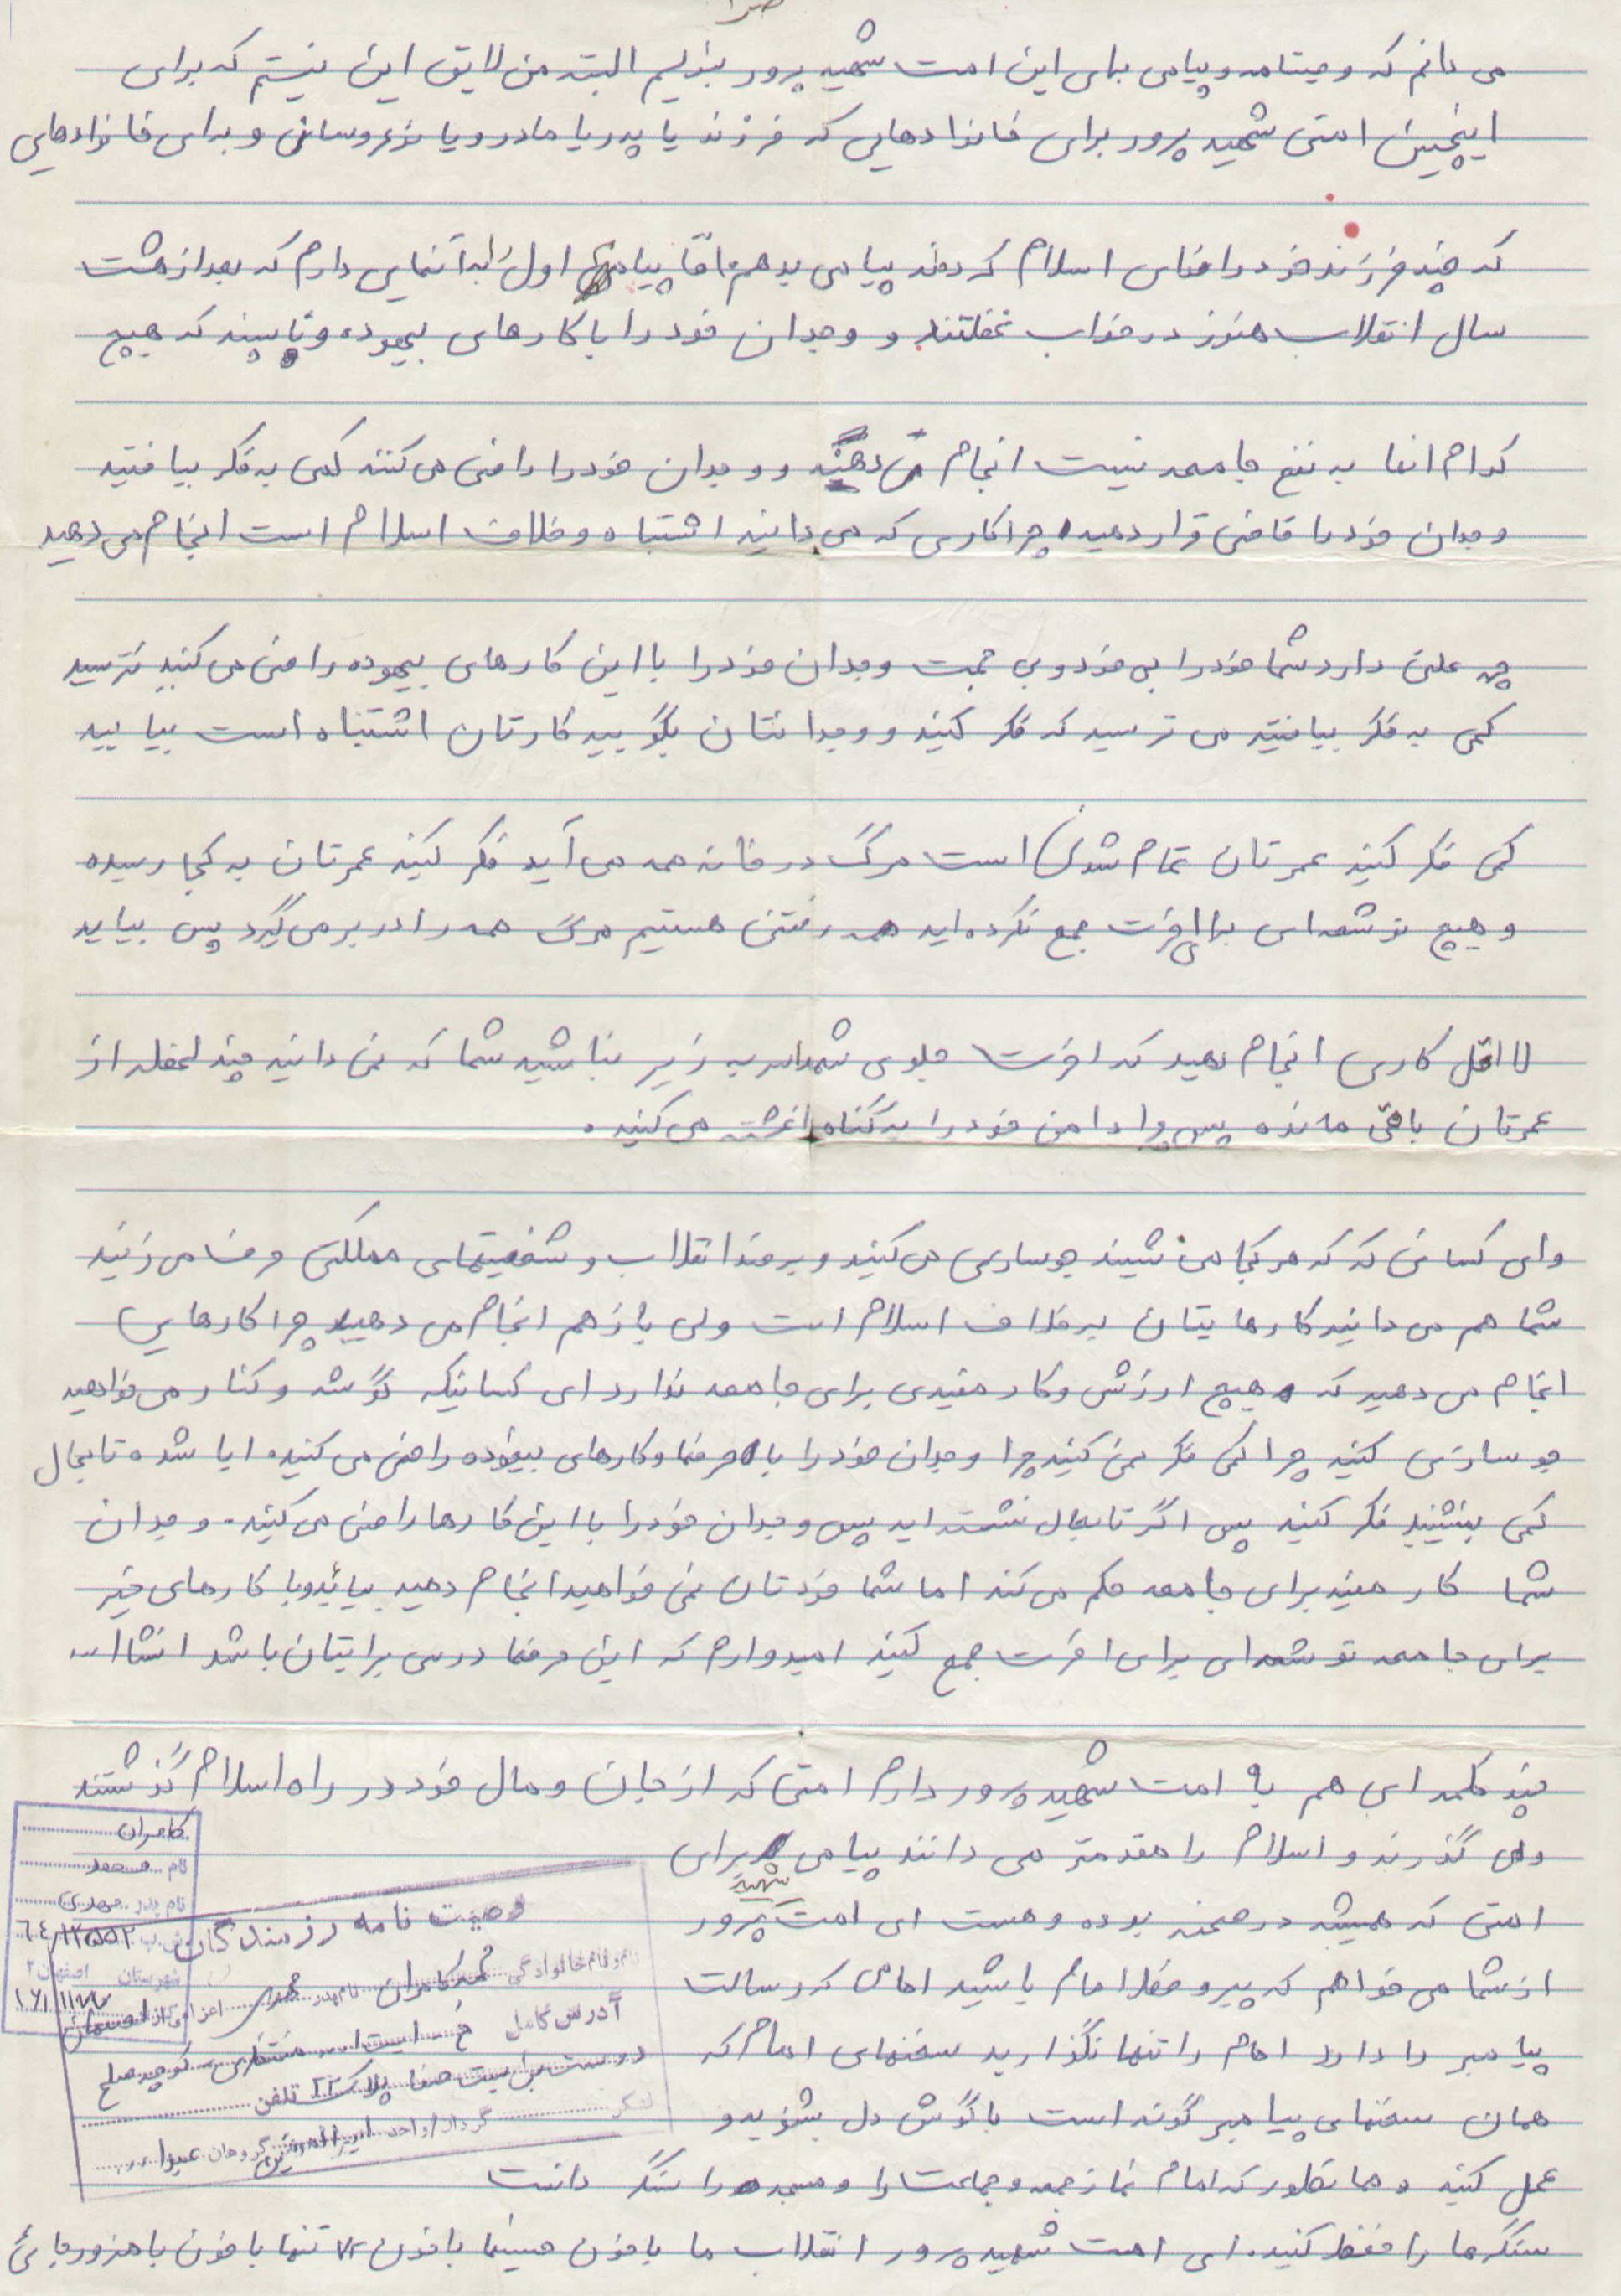 می دانم که وصیتنامه و پیامی برای این امت شهید پرور بنویسم البته من لایق این نیستم که برای
اینچنین امتی شهید پرور برای خانوادهایی که فرزند یا پدر یا مادر و یا نوعروسانی و برای خانوادهایی
که چند فرزند خود را فدای اسلام کردند پیامی بدهم اما پیام اول را به آنهایی دارم که بعد از هشت
سال انقلاب هنوز در خواب غفلتند و وجدان خود را با کارهای بیهوده و ناپسند که هیچ
کدام انها به نفع جامعه نیست انجام می دهند و وجدان خود را راضی می کنند کمی به فکر بیافتید
وجدان خود را قاضی قرار دهید چرا کاری که می دانید اشتباه و خلاف اسلام است انجام می دهید
چه علتی دارد شما خود را بی خود و بی جهت وجدان خود را با این کارهای بیهوده راضی می کنید نترسید
کمی به فکر بیافتید می ترسید که فکر کنید و وجدانتان بگویید کارتان اشتباه است بیایید
کمی فکر کنید عمرتان تمام شدنی است مرگ در خانه همه می آید فکر کنید عمرتان به کجا رسیده
و هیچ توشه‌ای برای اخرت جمع نکرده‌اید همه رفتنی هستیم مرگ همه را در بر می گیرد پس بیاید
لااقل کاری انجام دهید که اخرت جلوی شهدا سر به زیر نباشید شما که نمی دانید چند لحظه از
عمرتان باقی مانده پس چرا دامن خود را به گناه اغشته می کنید.
وای کسانی که که هر کجا می نشیند جوسازی می کنید و بر ضد انقلاب و شخصیتهای مملکتی حرفها می زنید
شما هم می دانید کارهایتان بر خلاف اسلام است ولی باز هم انجام می دهید چرا کارهایی
انجام می دهید که هیچ ارزش و کار مفیدی برای جامعه ندارد ای کسانیکه گوشه و کنار می خواهید
جوسازی کنید چرا کمی فکر نمی کنید چرا وجدان خود را با حرفها و کارهای بیهوده راضی می کنید. ایا شده تابحال
کمی بنشینید فکر کنید پس اگر تابحال ننشسته‌اید پس وجدان خود را با این کارها راضی می کنید. وجدان
شما کار مفید برای جامعه حکم می کند اما شما خودتان نمی خواهید انجام دهید بیائید و با کارهای خیر
برای جامعه توشه‌ای برای اخرت جمع کنید امیدوارم که این حرفها درسی برایتان باشد انشاا...
چند کلمه‌ای هم با امت شهید پرور دارم امتی که از جان و مال خود در راه اسلام گذشتند
و می گذرند و اسلام را مقدمتر می دانند پیامی برای
امتی که همیشه در صحنه بوده و هست ای امت شهید پرور
از شما می خواهم که پیرو خط امام باشید امامی که رسالت
پیامبر را دارد امام را تنها نگذارید سخنهای امام که
همان سخنهای پیامبر گونه است با گوش دل بشنوید و
عمل کنید و همانطور که امام نماز جمعه و جماعت را و مسجد را سنگر دانست
سنگرها را حفظ کنید. ای امت شهید پرور انقلاب ما با خون حسینها با خون ۷۲ تنها با خون باهنر و رجائی
کامران
نام محمد
نام پدر مهدی
۶۴/۱۳۵۵۲
شهرستان اصفهان ۲
وصیت نامه رزمندگان
نام و نام خانوادگی محمد کامران نام پدر مهدی اعزامی از اصفهان
آدرس کامل خ ایت ا... منتظری کوچه صلح
پلاک ۲۲ تلفن
لشکر گردان/واحد گروهان